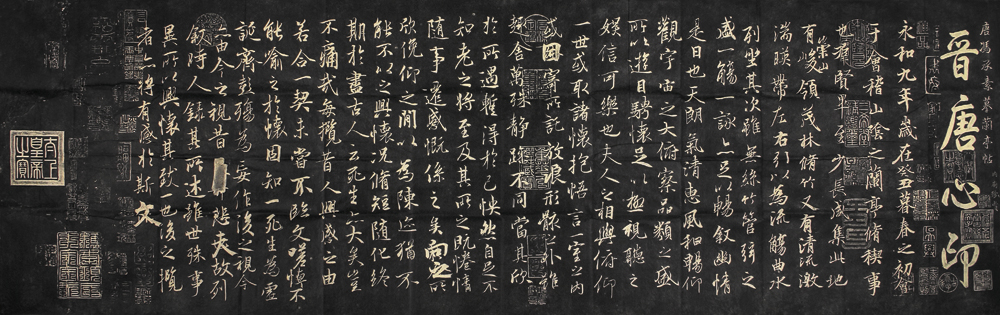 唐馮承素摹蘭亭帖
晉唐心印
永和九年歲在癸丑暮春之初會
于會稽山陰之蘭亭脩稧事
也羣賢畢至少長咸集此地
有崇山峻領茂林脩竹又有清流激
湍暎帶左右引以為流觴曲水
列坐其次雖無絲竹管弦之
盛一觴一詠亦足以暢敘幽情
是日也天朗氣清惠風和暢仰
觀宇宙之大俯察品類之盛
所以遊目騁懷足以極視聽之
娛信可樂也夫人之相與俯仰
一世或取諸懷抱悟言一室之內
或因寄所託放浪形骸之外雖
趣舍萬殊靜躁不同當其欣
於所遇蹔得於己怏然自足不
知老之將至及其所之既惓情
隨事遷感慨係之矣向之所
欣俛仰之間以為陳迹猶不
能不以之興懷況脩短隨化終
期於盡古人云死生亦大矣豈
不痛哉每攬昔人興感之由
若合一契未嘗不臨文嗟悼不
能喻之於懷固知一死生為虛
誕齊彭殤為妄作後之視今
亦由今之視昔悲夫故列
敘時人錄其所述雖世殊事
異所以興懷其致一也後之攬
者亦將有感於斯文